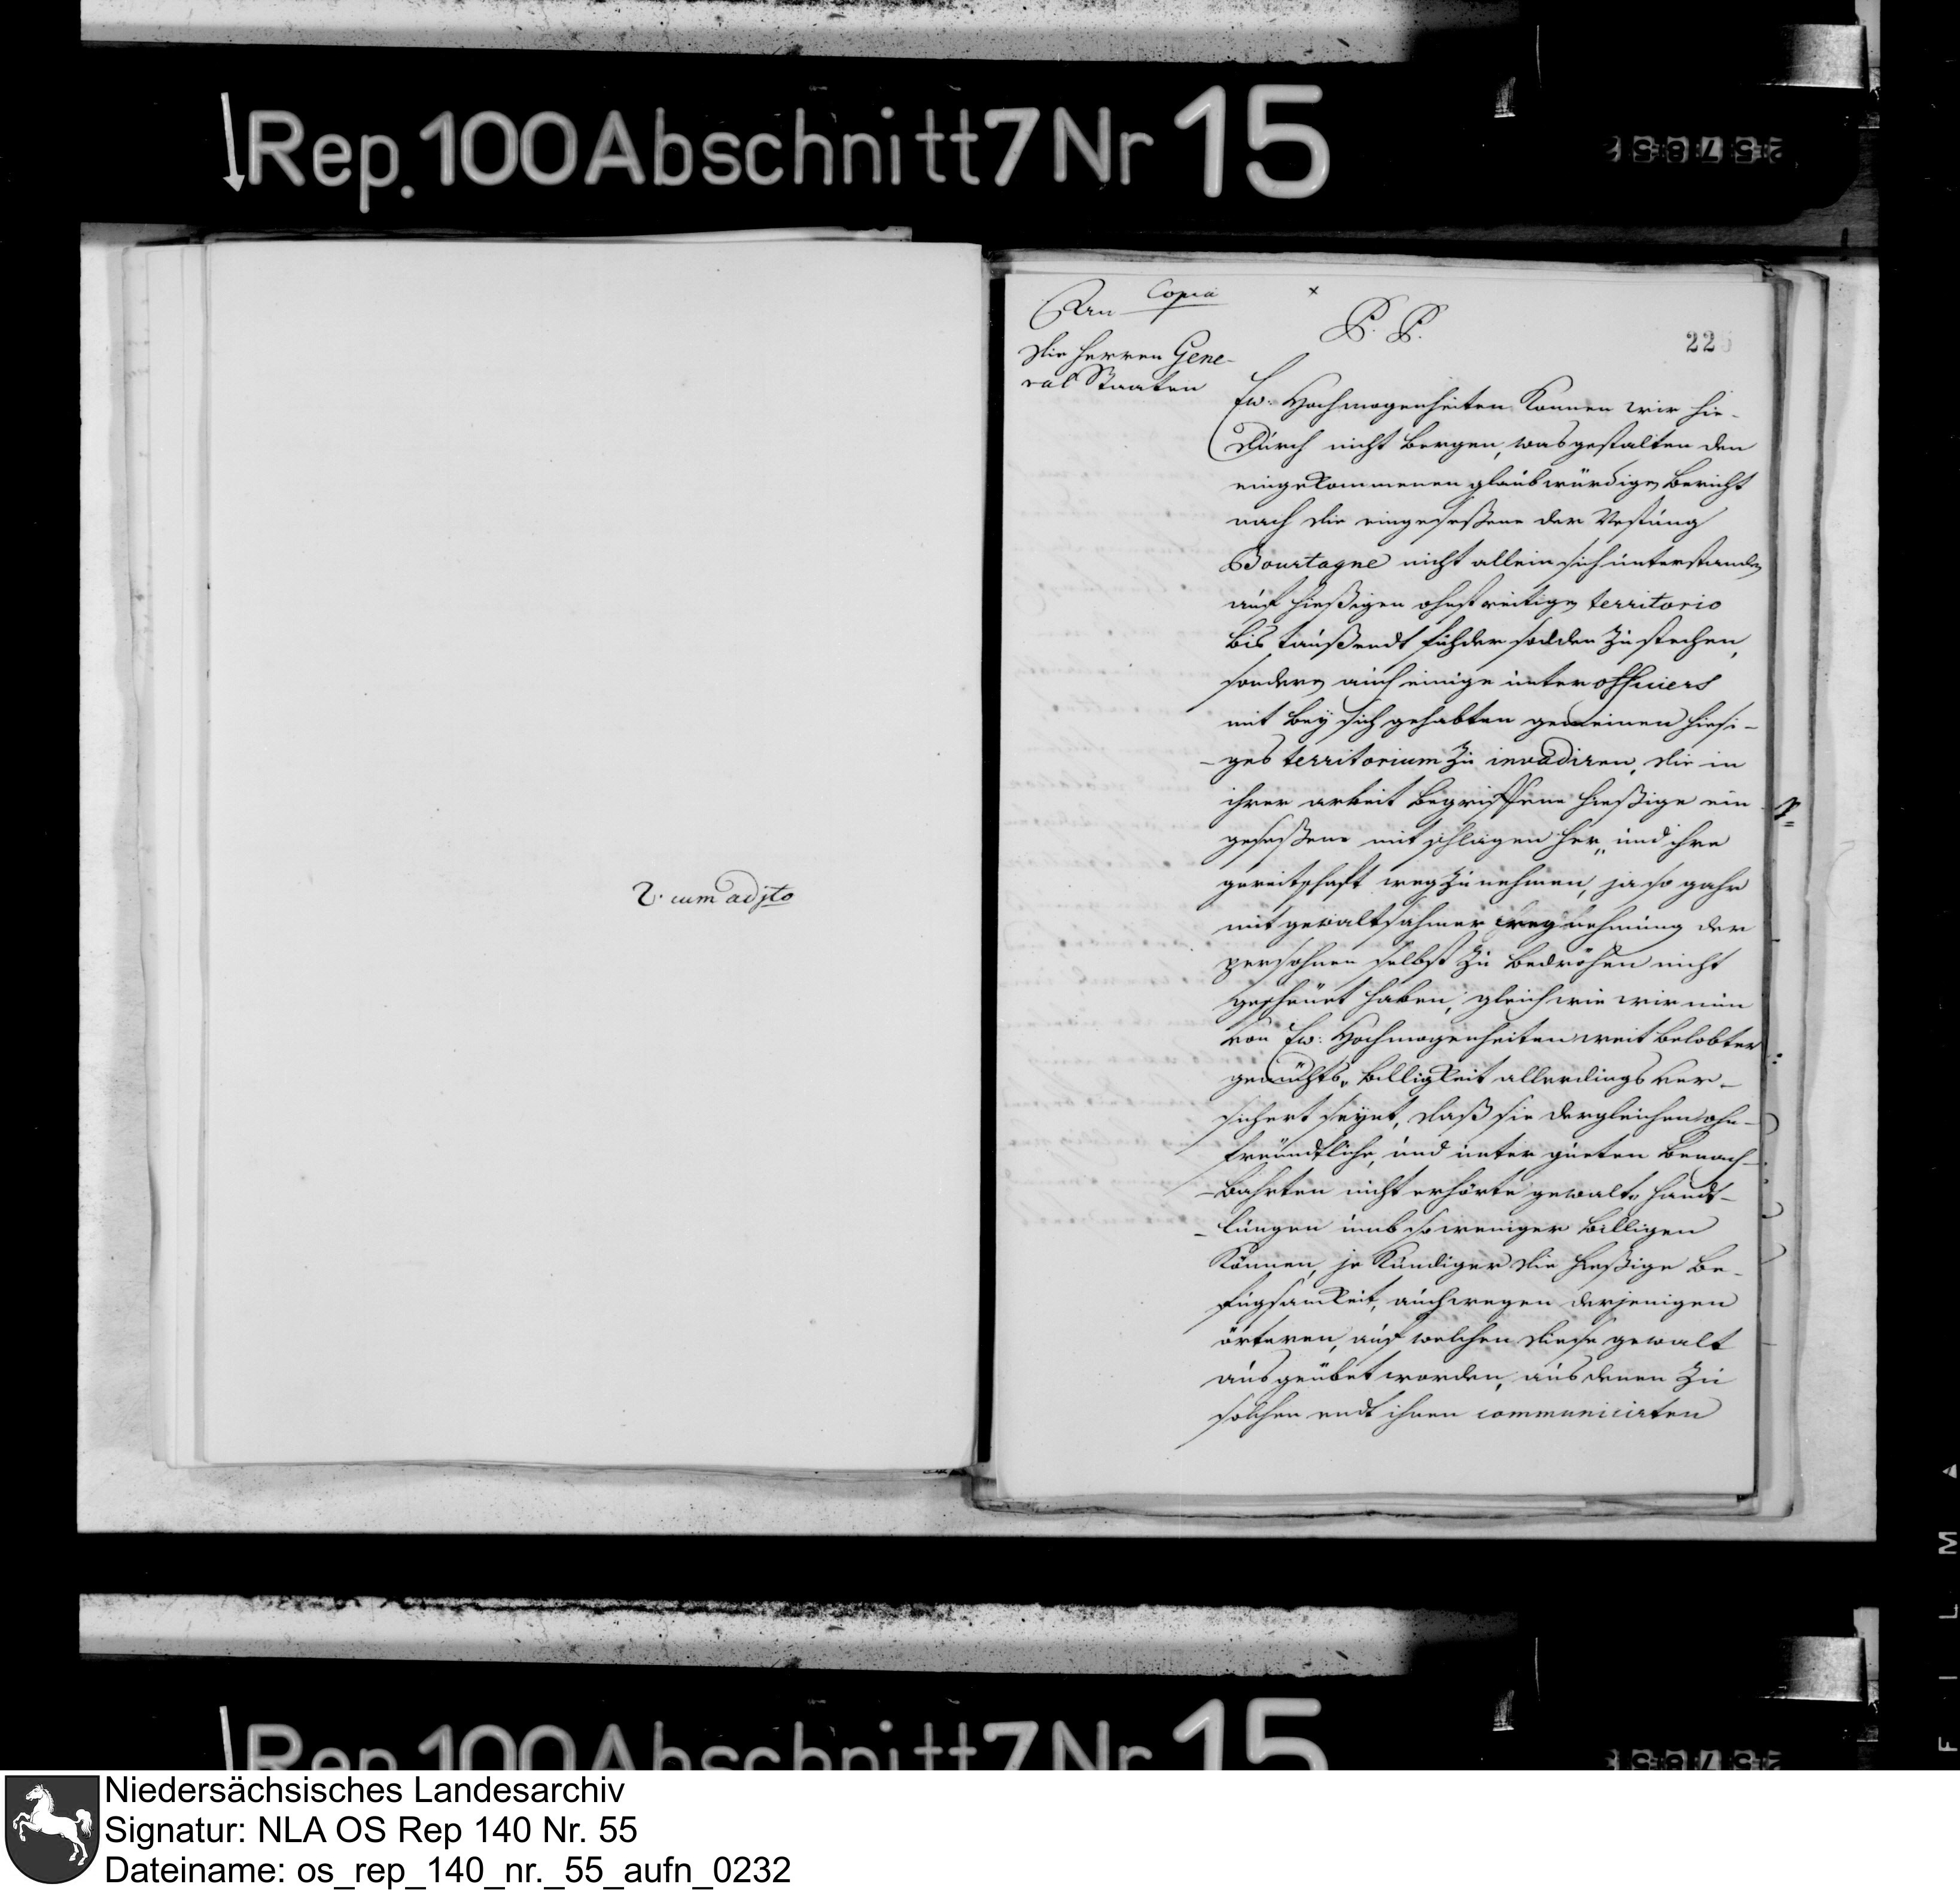 Rep. 100 Abschnitt 7 Nr 15
2. cum adjto
Copia
An
die Herren Gene-
ral Staaten
P. P.
22
Ew: Hochmogenheiten können wir hie-
durch nicht bergen, was gestalten den
eingekommenen glaubwürdigen bericht
nach die eingeseßene der Vestung
Bourtagne nicht allein sich unterstanden
auf hießigen ohnstreitigen territorio
bis taußendt fuhder sodden zu stechen,
sondern auch einige unter officiers
mit bey sich gehabten gemeinen hiesi-
-ges territorium zu invadiren, die in
ihrer arbeit begriffene hießige ein
geseßene mit schlägen her, und ihre
gereitschaft weg zu nehmen, ja so gahr
mit gewaltsahmer wegnehmung der
persohnen selbst zu bedrohen nicht
gescheuet haben, gleich wie wir nun
von Ew: Hochmogenheiten weit belobter
gemüths billigkeit allerdings ver-
sichert seynt, daß sie dergleichen ohn-
freundtliche, und unter guten benach-
-bahrten nicht erhörte gewalt handt-
-lungen umb so weniger billigen
können, je kundiger die hießige be-
fugsamkeit, auch wegen derjenigen
örteren, auf welchen diese gewalt
ausgeübet worden, aus denen zu
solchen endt ihnen communicirten
Rep. 100 Abschnitt 7 Nr 15
F I L M A
Niedersächsisches Landesarchiv
Signatur: NLA OS Rep 140 Nr. 55
Dateiname: os_rep_140_nr._55_aufn_0232